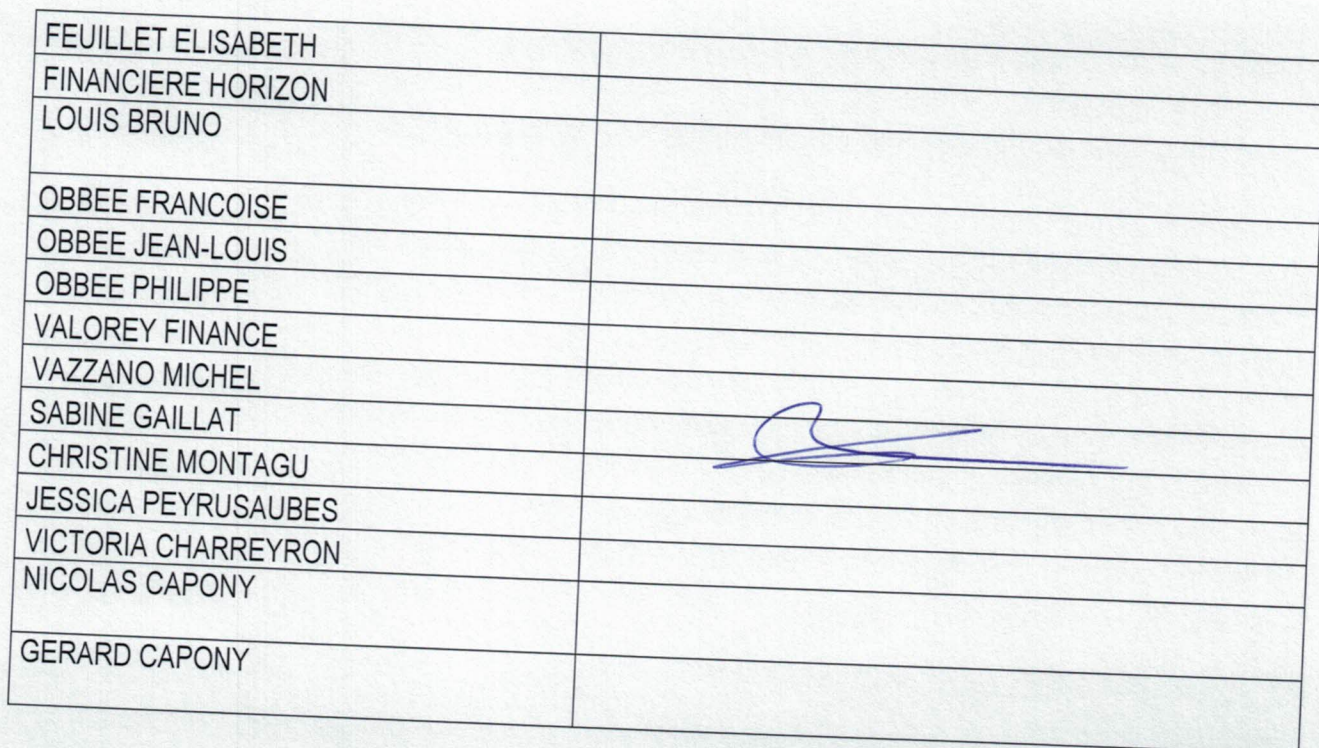 FEUILLET ELISABETH
FINANCIERE HORIZON
LOUIS BRUNO
OBBEE FRANCOISE
OBBEE JEAN-LOUIS
OBBEE PHILIPPE
VALOREY FINANCE
VAZZANO MICHEL
SABINE GAILLAT
CHRISTINE MONTAGU
JESSICA PEYRUSAUBES
VICTORIA CHARREYRON
NICOLAS CAPONY
GERARD CAPONY